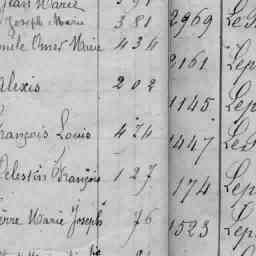 Jean Marie
Joseph Marie 381 2969 Le
Omer Marie 434
2161 Lep
Alexis 202
1145 Lep
François Louis 474
1447 Le
Célestin François 127
174 Lep
Pierre Marie Joseph 76
1523 Lep